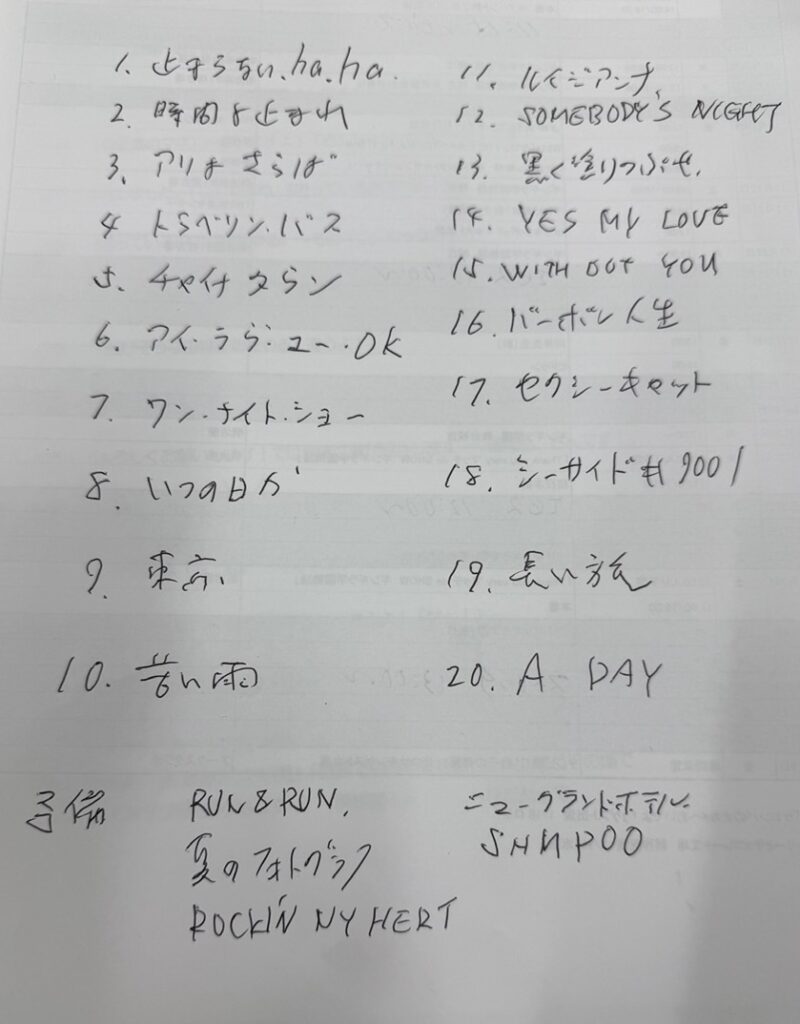 1. 止まらない.ha.ha.
2. 時間よ止まれ
3、アリよさらば
4 トラベリン.バス
5、チャイナタウン
6、アイ・ラヴ・ユー・OK
7、ワン・ナイト・ショー
8、いつの日か
9、東京、
10. 苦い雨
11、ルイジアンナ、
12. SOMEBODY'S NIGHT
13、黒く塗りつぶせ、
14. YES MY LOVE
15. WITH OUT YOU
16. バーボン人生
17. セクシーキャット
18. シーサイド#9001
19. 長い旅
20. A DAY
予備
RUN&RUN,
夏のフォトグラフ
ROCKIN' NY HERT
ニューグランドホテル
SHNPOO